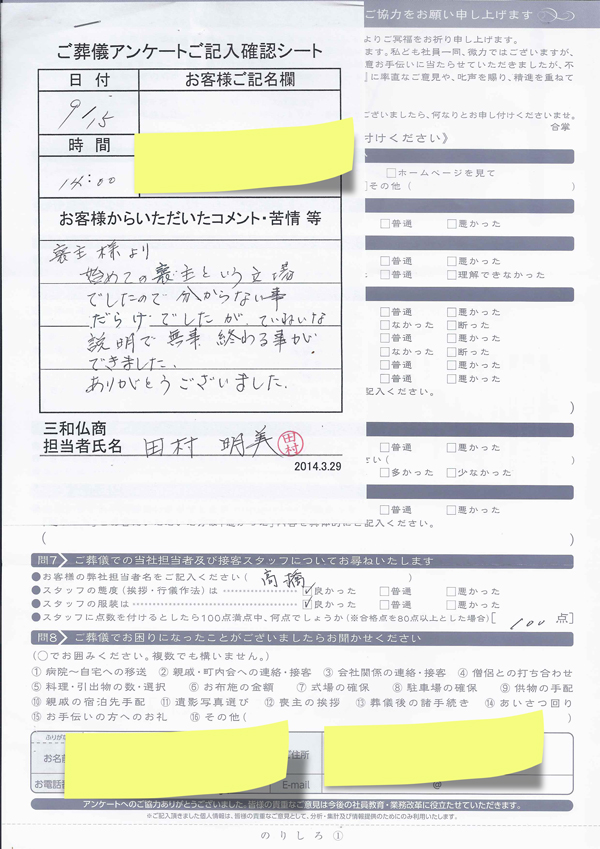 ご葬儀アンケートご記入確認シート
日 付
お客様ご記名欄
9/15
時 間
14:00
お客様からいただいたコメント・苦情 等
喪主様より
始めての喪主という立場
でしたので 分からない事
だらけでしたが、ていねいな
説明で無事 終わる事が
できました。
ありがとうございました。
三和仏商
担当者氏名 田村 明美 田村
2014.3.29
ご協力をお願い申し上げます
よりご冥福をお祈り申し上げます。
ます。私ども社員一同、微力ではございますが、
意お手伝いに当たらせていただきましたが、不
』に率直なご意見や、叱声を賜り、精進を重ねて
ございましたら、何なりとお申し付けくださいませ。
合掌
付けください》
□ホームページを見て
□その他（ ）
□普通 □悪かった
□普通 □悪かった
□普通 □理解できなかった
□普通 □悪かった
□なかった □断った
□普通 □悪かった
□なかった □断った
□普通 □悪かった
□普通 □悪かった
記入ください。
）
□普通 □悪かった
さい（ ）
□多かった □少なかった
□普通 □悪かった
記入ください。
（ ）
問7 ご葬儀での当社担当者及び接客スタッフについてお尋ねいたします
●お客様の弊社担当者名をご記入ください（ 高橋 ）
●スタッフの態度（挨拶・行儀作法）は ☑良かった □普通 □悪かった
●スタッフの服装は ☑良かった □普通 □悪かった
●スタッフに点数を付けるとしたら100点満点中、何点でしょうか（※合格点を80点以上とした場合）[ 100 点]
問8 ご葬儀でお困りになったことがございましたらお聞かせください
（○でお囲みください。複数でも構いません。）
①病院～自宅への移送 ②親戚・町内会への連絡・接客 ③会社関係の連絡・接客 ④僧侶との打ち合わせ
⑤料理・引出物の数・選択 ⑥お布施の金額 ⑦式場の確保 ⑧駐車場の確保 ⑨供物の手配
⑩親戚の宿泊先手配 ⑪遺影写真選び ⑫喪主の挨拶 ⑬葬儀後の諸手続き ⑭あいさつ回り
⑮お手伝いの方へのお礼 ⑯その他（ ）
ふりがな
お名前
ご住所
お電話番
E-mail
@
アンケートへのご協力ありがとうございました。皆様の貴重なご意見は今後の社員教育・業務改革に役立たせていただきます。
※ご記入頂きました個人情報は、皆様の貴重なご意見として、分析・集計及び情報提供のためにのみ利用いたします。
のりしろ①